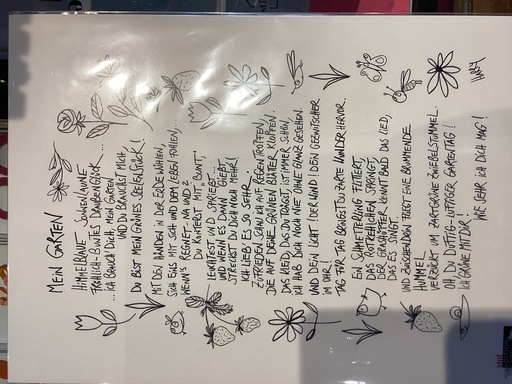 MEIN GARTEN
HIMMELBLAUE, SONNENLAUNE
FRÖHLICH-BUNTES DAUBENGLÜCK...
...ICH BRAUCH DICH, MEIN GARTEN
UND DU BRAUCHST MICH,
DU BIST MEIN GRÜNES GEGENSTÜCK!
MIT DEN HÄNDEN IN DER ERDE WÜHLEN,
SICH EINS MIT SICH UND DEM LEBEN FÜHLEN.
WENN'S REGNET, NA UND?
DU KONTERST MIT "BUNT",
EINFACH UNVERBLÜMT
UND WENN ES DANN GIEßT,
STRECKST DU DICH NOCH MEHR!
ICH LIEB' ES SO SEHR.
ZUFRIEDEN SCHAU ICH AUF REGENTROPFEN,
DIE AUF DEINE GRÜNEN BLÄTTER KLOPFEN.
DAS KLEID, DAS DU TRÄGST, IST IMMER SCHÖN,
ICH HAB DICH NOCH NIE OHNE GLANZ GESEHEN.
UND DEIN LICHT! DER WIND! DEIN GEZWITSCHER
IM OHR!
TAG FÜR TAG BRINGST DU ZARTE WUNDER HERVOR.
EIN SCHMETTERLING FLATTERT,
DAS ROTKEHLCHEN SPRINGT,
DER GRASHÜPFER KENNT BALD DAS LIED,
DAS ES SINGT.
UND ZWISCHENDRIN FLIEGT EINE BRUMMENDE
HUMMEL
VERZÜCKT IM ZARTGRÜNE ZWIEBELSTUMMEL.
OH, DU DUFTIG-LUFTIGER GARTENTAG!
ICH GRÜNE MIT DIR!
WIE SEHR ICH DICH MAG!